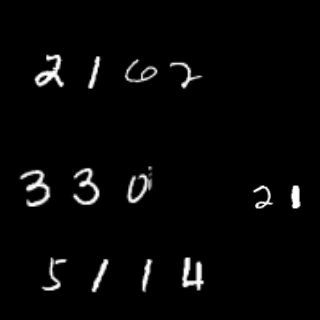 2162
330 21
5114